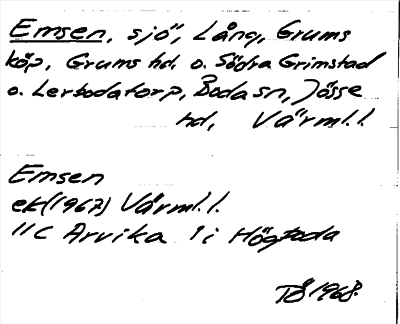 Emsen, sjö, Lång, Grums
köp, Grums hd. o. Södra Grimstad
o. Lerbodatorp, Boda sn, Jösse
hd, Värml.l.
Emsen
ek(1967) Värml.l.
11C Arvika 1 i Högboda
TÖ 1968.